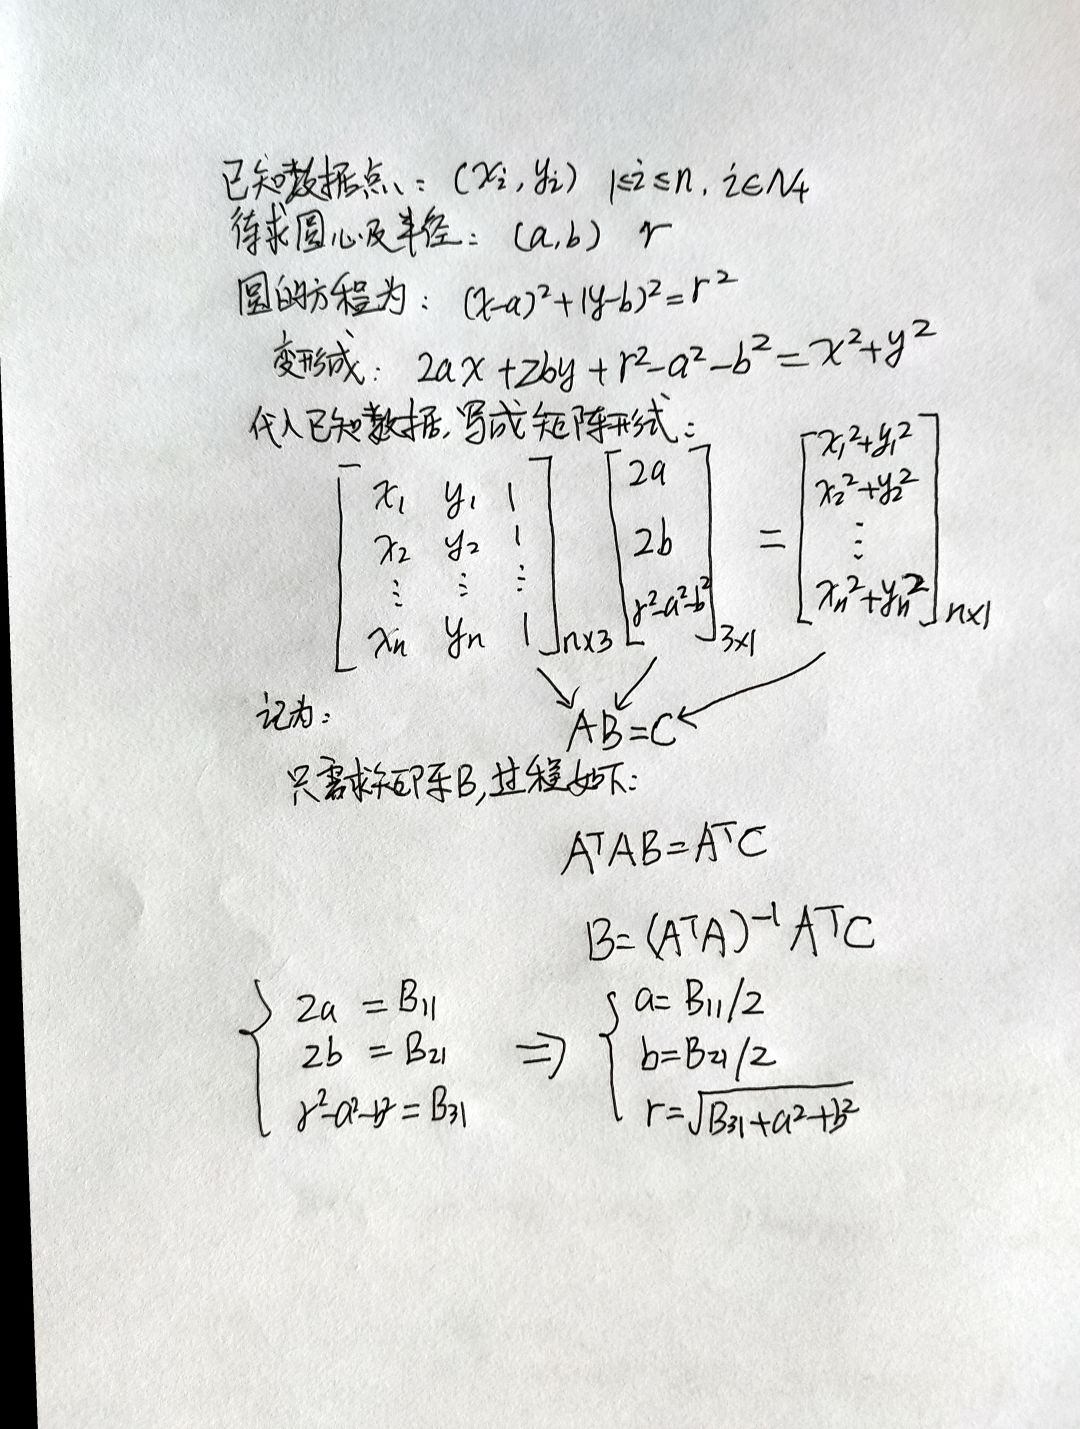 已知数据点: (xᵢ, yᵢ) 1≤i≤n, i∈N₊
待求圆心及半径: (a,b) r
圆的方程为: (x-a)²+(y-b)²=r²
变形成: 2ax+2by+r²-a²-b²=x²+y²
代入已知数据,写成矩阵形式:
[x₁ y₁ 1; x₂ y₂ 1; ⋮ ⋮ ⋮; xₙ yₙ 1]n×3 [2a; 2b; r²-a²-b²]3×1 = [x₁²+y₁²; x₂²+y₂²; ⋮; xₙ²+yₙ²]n×1
记为: AB=C
只需求矩阵B,过程如下:
AᵀAB=AᵀC
B=(AᵀA)⁻¹AᵀC
{2a=B₁₁ ⇒ {a=B₁₁/2
2b=B₂₁ b=B₂₁/2
r²-a²-b²=B₃₁ r=√(B₃₁+a²+b²)